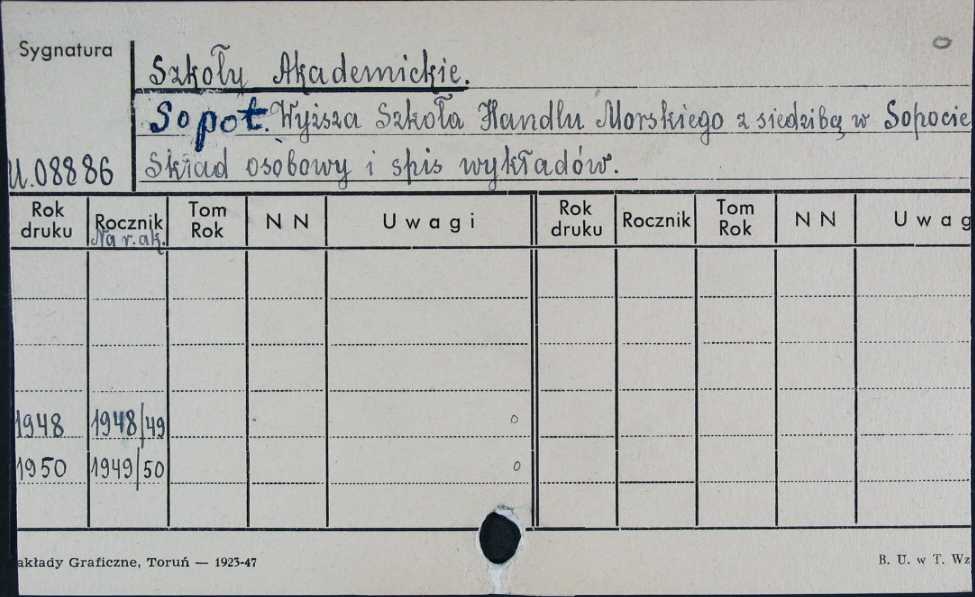 Sygnatura
Szkoły Akademickie.
Sopot. Wyższa Szkoła Handlu Morskiego z siedzibą w Sopocie
U.08886 Skład osobowy i spis wykładów.
Rok druku Rocznik Na r. ak. Tom Rok N N Uwagi Rok druku Rocznik Tom Rok N N Uwag
1948 1948/49
1950 1949/50
akłady Graficzne, Toruń — 1923-47 B. U. w T. Wz